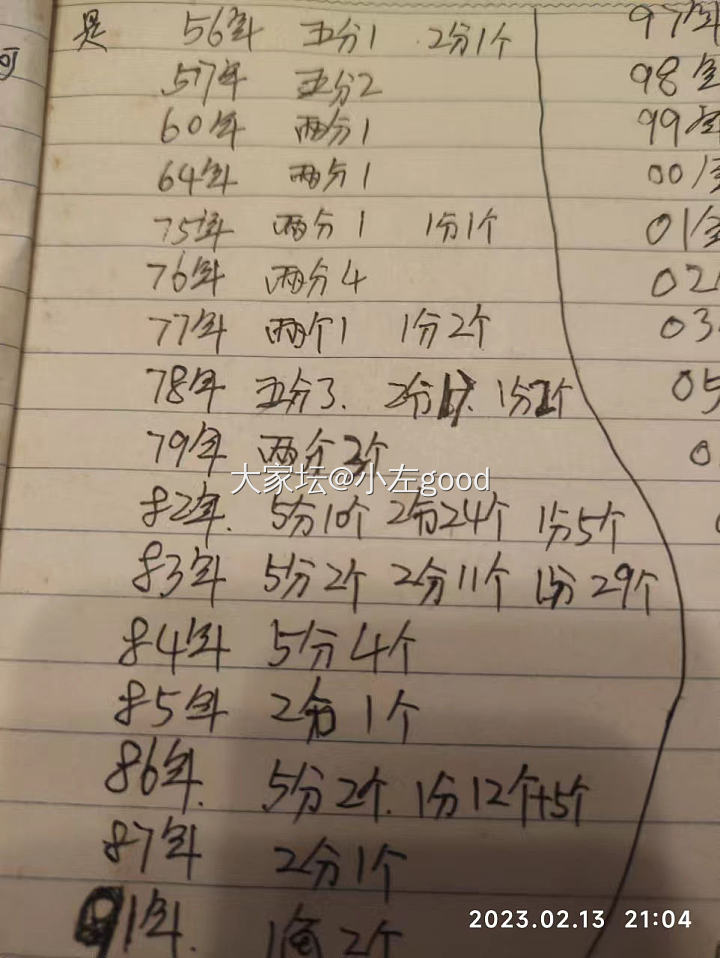 是 56年 五分1 2分1个
57年 五分2
60年 两分1
64年 两分1
75年 两分1 1分1个
76年 两分4
77年 两个1 1分2个
78年 五分3. 2分 1分 个
79年 两分3个
大家坛@小左good
82年. 5分10个 2分24个 1分5个
83年 5分2个 2分11个 1分29个
84年 5分4个
85年 2分1个
86年. 5分2个. 1分12个+5个
87年 2分1个
91年. 1 2个
97年
98年
99年
00年
01年
02
03
05
0
可
2023.02.13 21:04